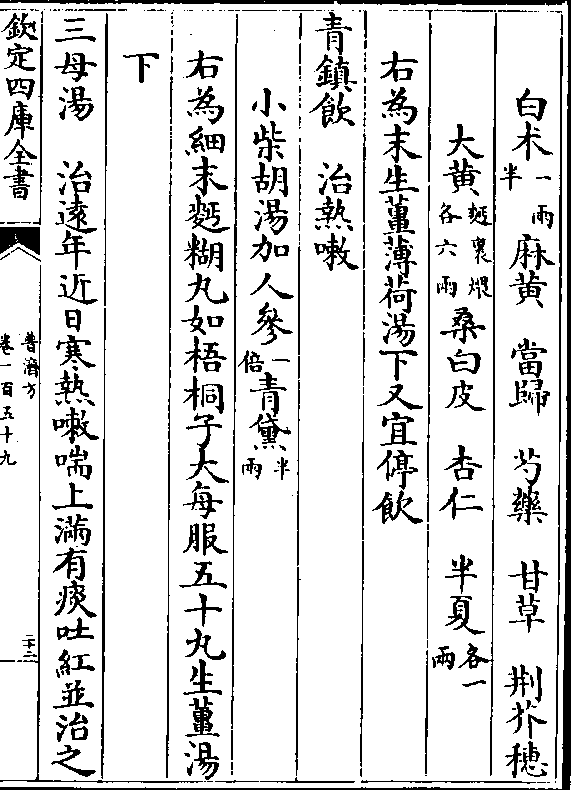 白术一兩半　麻黄　當歸　芍藥　甘草　荆芥穗
大黄麪裹煨各六兩桑白皮　杏仁　半夏各一兩
右為末生薑薄荷湯下又宜停飲
青鎮飲　治熱嗽
小柴胡湯加人參一倍青黛半兩
右為細末麪糊丸如梧桐子大每服五十丸生薑湯
下
三母湯　治遠年近日寒熱嗽喘上滿有痰吐紅並治之
欽定四庫全書
普濟方
卷一百五十九